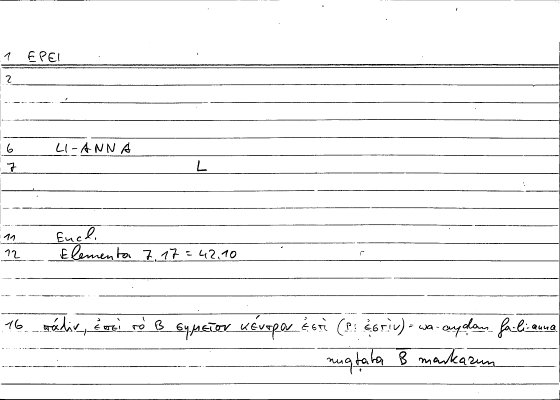 1 EPEI
2
6 LI-ANNA
7 L
11 Eucl.
12 Elementa 7.17 = 42.10
16 πάλιν, ἐπεὶ τὸ B σημεῖον κέντρον ἐστὶ (P: ἐστὶν) = wa-ayḍan fa-li-anna
nuqṭata B̅ markazun